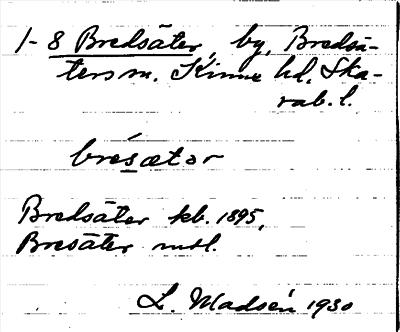 1-8 Bredsäter, by, Bredsä-
ters sn. Kinne hd. Ska-
rab. l.
bre´sætər
Bredsäter kb. 1895,
Bresäter mtl.
L. Madsén 1930